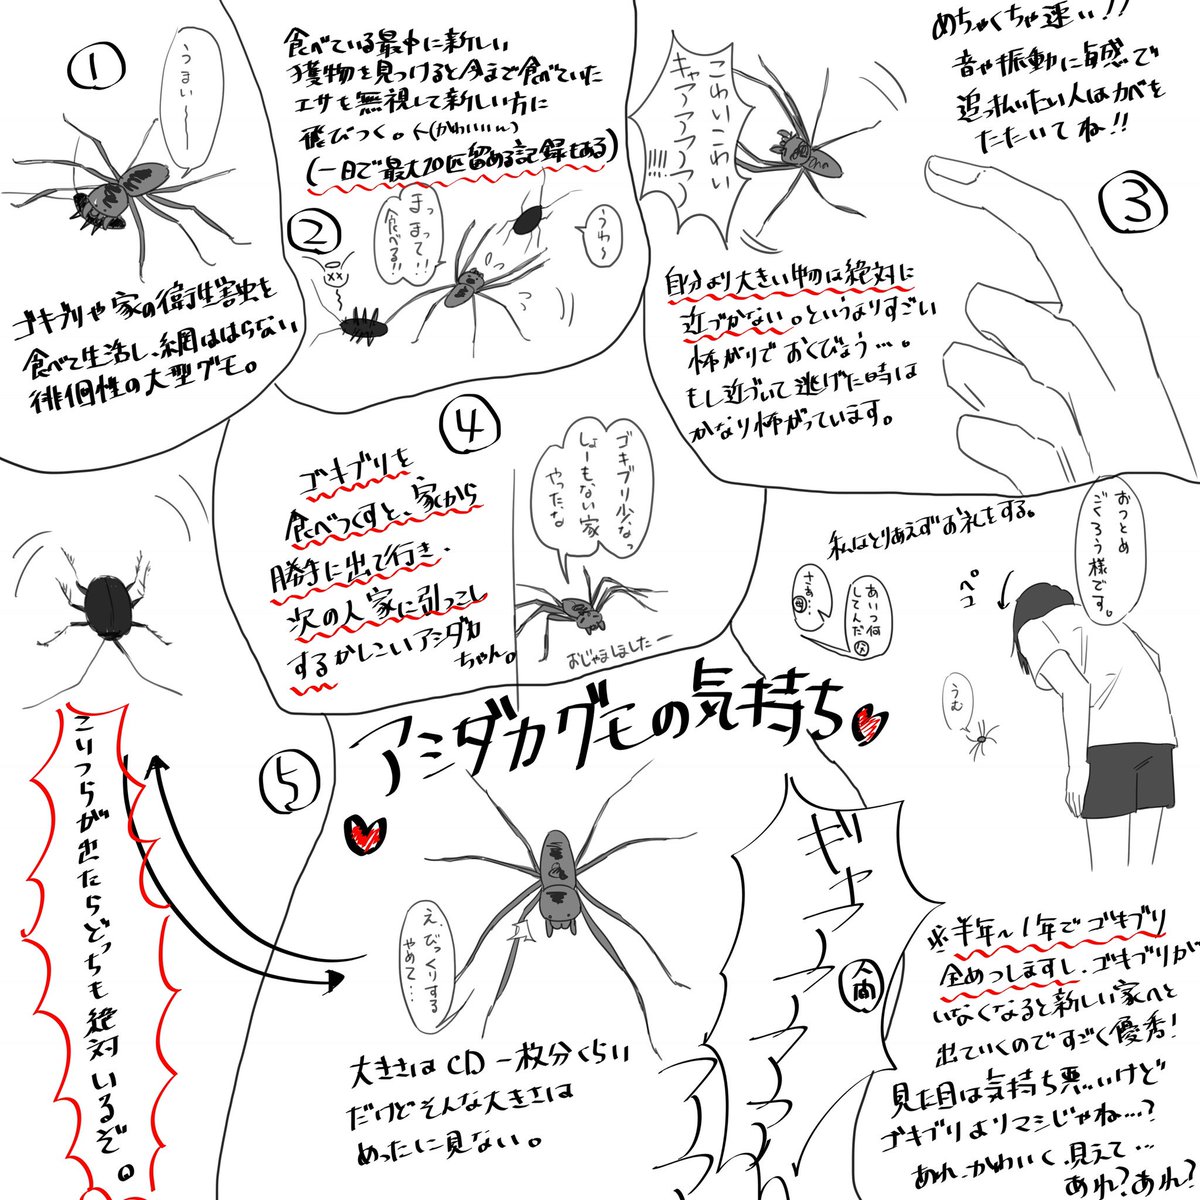 ①
うまい〜
ゴキブリや家の衛生害虫を
食べて生活し、網ははらない
徘徊性の大型グモ。
食べている最中に新しい
獲物を見つけると今まで食べていた
エサを無視して新しい方に
飛びつく。←(かわいいん)
(一日で最大20匹留める記録もある)
②
まっ
まって!!
食べる!!
うわ〜
こわいこわい
キャアアアア
!!!!
めちゃくちゃ速い!!
音や振動に敏感で
追っ払いたい人はカベを
たたいてね!!
③
自分より大きい物には絶対に
近づかない。というよりすごい
怖がりでおくびょう…。
もし近づいて逃げた時は
かなり怖がっています。
④
ゴキブリを
食べつくすと、家から
勝手に出て行き、
次の人家に引っこし
するかしこいアシダカ
ちゃん。
ゴキブリ少なっ
しょーもない家
やったな
おじゃましましたー
私はとりあえずお礼をする。
おつとめ
ごくろう様です。
ペコ
あいつ何
してんだ 父
さあ… 母
うむ
アシダカグモの気持ち
⑤
え、びっくりする
やめて…
大きさはCD一枚分くらい
だけどそんな大きさは
めったに見ない。
こいつらが出たらどっちも絶対いるぞ。
ギャアアアアアア
人間
※半年〜1年でゴキブリ
全めつしますし、ゴキブリが
いなくなると新しい家へと
出ていくのですごく優秀!
見た目は気持ち悪いけど
ゴキブリよりマシじゃね…?
あれ、かわいく見えて…
あれ?あれ?